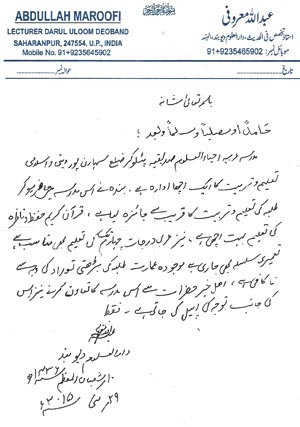 ABDULLAH MAROOFI
LECTURER DARUL ULOOM DEOBAND
SAHARANPUR, 247554, U.P., INDIA
Mobile No. 91+9235645902
عبداللہ معروفی
استاذ تخصص فی الحدیث، دارالعلوم دیوبند، الہند
موبائل نمبر: 9235465902+91
تاریخ
حوالہ نمبر
باسمہ تعالیٰ شانہ
حامداً و مصلیاً و مسلماً وبعد!
مدرسہ عربیہ احیاء العلوم صدیقیہ ضلع سہارن پور دینی و اسلامی
تعلیم و تربیت کا ایک اچھا ادارہ ہے۔ بندہ نے اس مدرسہ میں حاضر ہو کر
طلبہ کی تعلیم و تربیت کا قریب سے جائزہ لیا ہے، قرآن کریم حفظ و ناظرہ
کی تعلیم بہت اچھی ہے، نیز عربی درجات چہارم تک کی تعلیم بھی مناسب ہے
تعمیری سلسلہ بھی جاری ہے موجودہ عمارت طلبہ کی بڑھتی تعداد کی وجہ سے
ناکافی ہے، اہل خیر حضرات سے اس مدرسہ کا تعاون کرنے نیز اس
کی جانب توجہ کی اپیل کی جاتی ہے۔ فقط
دارالعلوم دیوبند
۱۰ شعبان المعظم ۱۴۳۶ھ
۲۹ مئی ۲۰۱۵ء